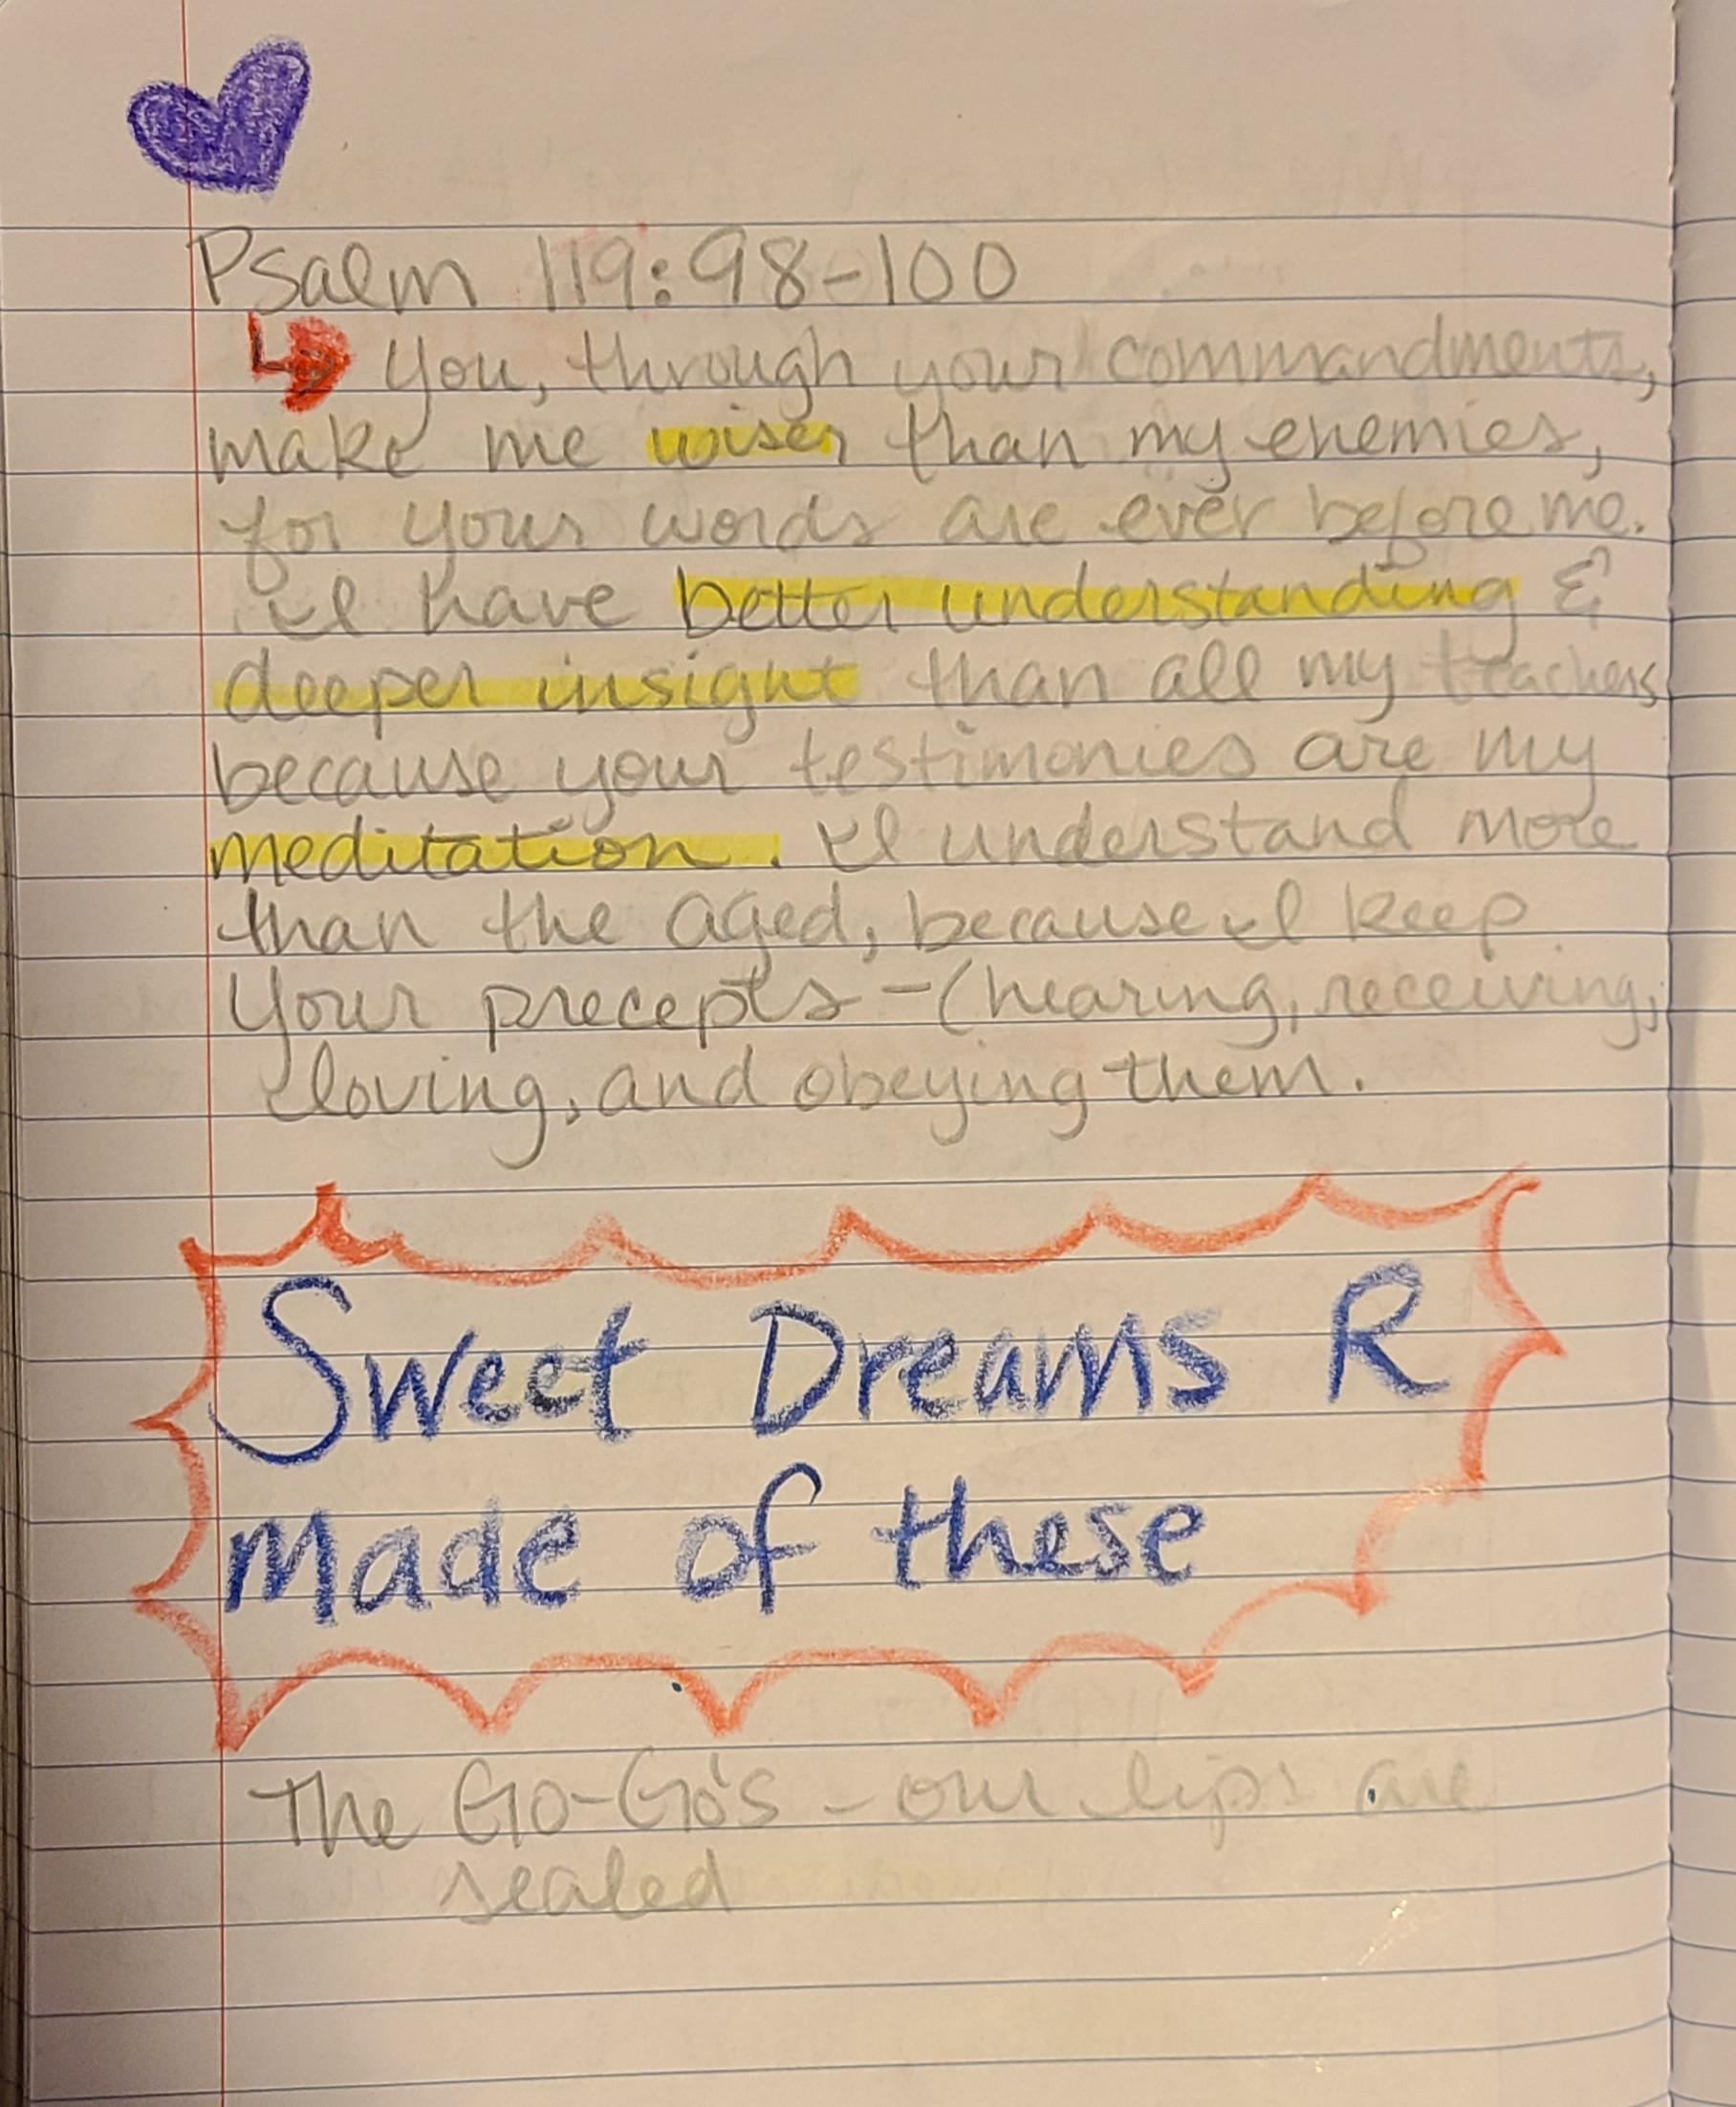 Psalm 119:98-100
You, through your commandments,
make me wiser than my enemies,
for your words are ever before me.
I have better understanding &
deeper insight than all my teachers
because your testimonies are my
meditation. I understand more
than the aged, because I keep
Your precepts -(hearing, receiving,
loving, and obeying them.
Sweet Dreams R
made of these
The Go-Go's - our lips are
sealed